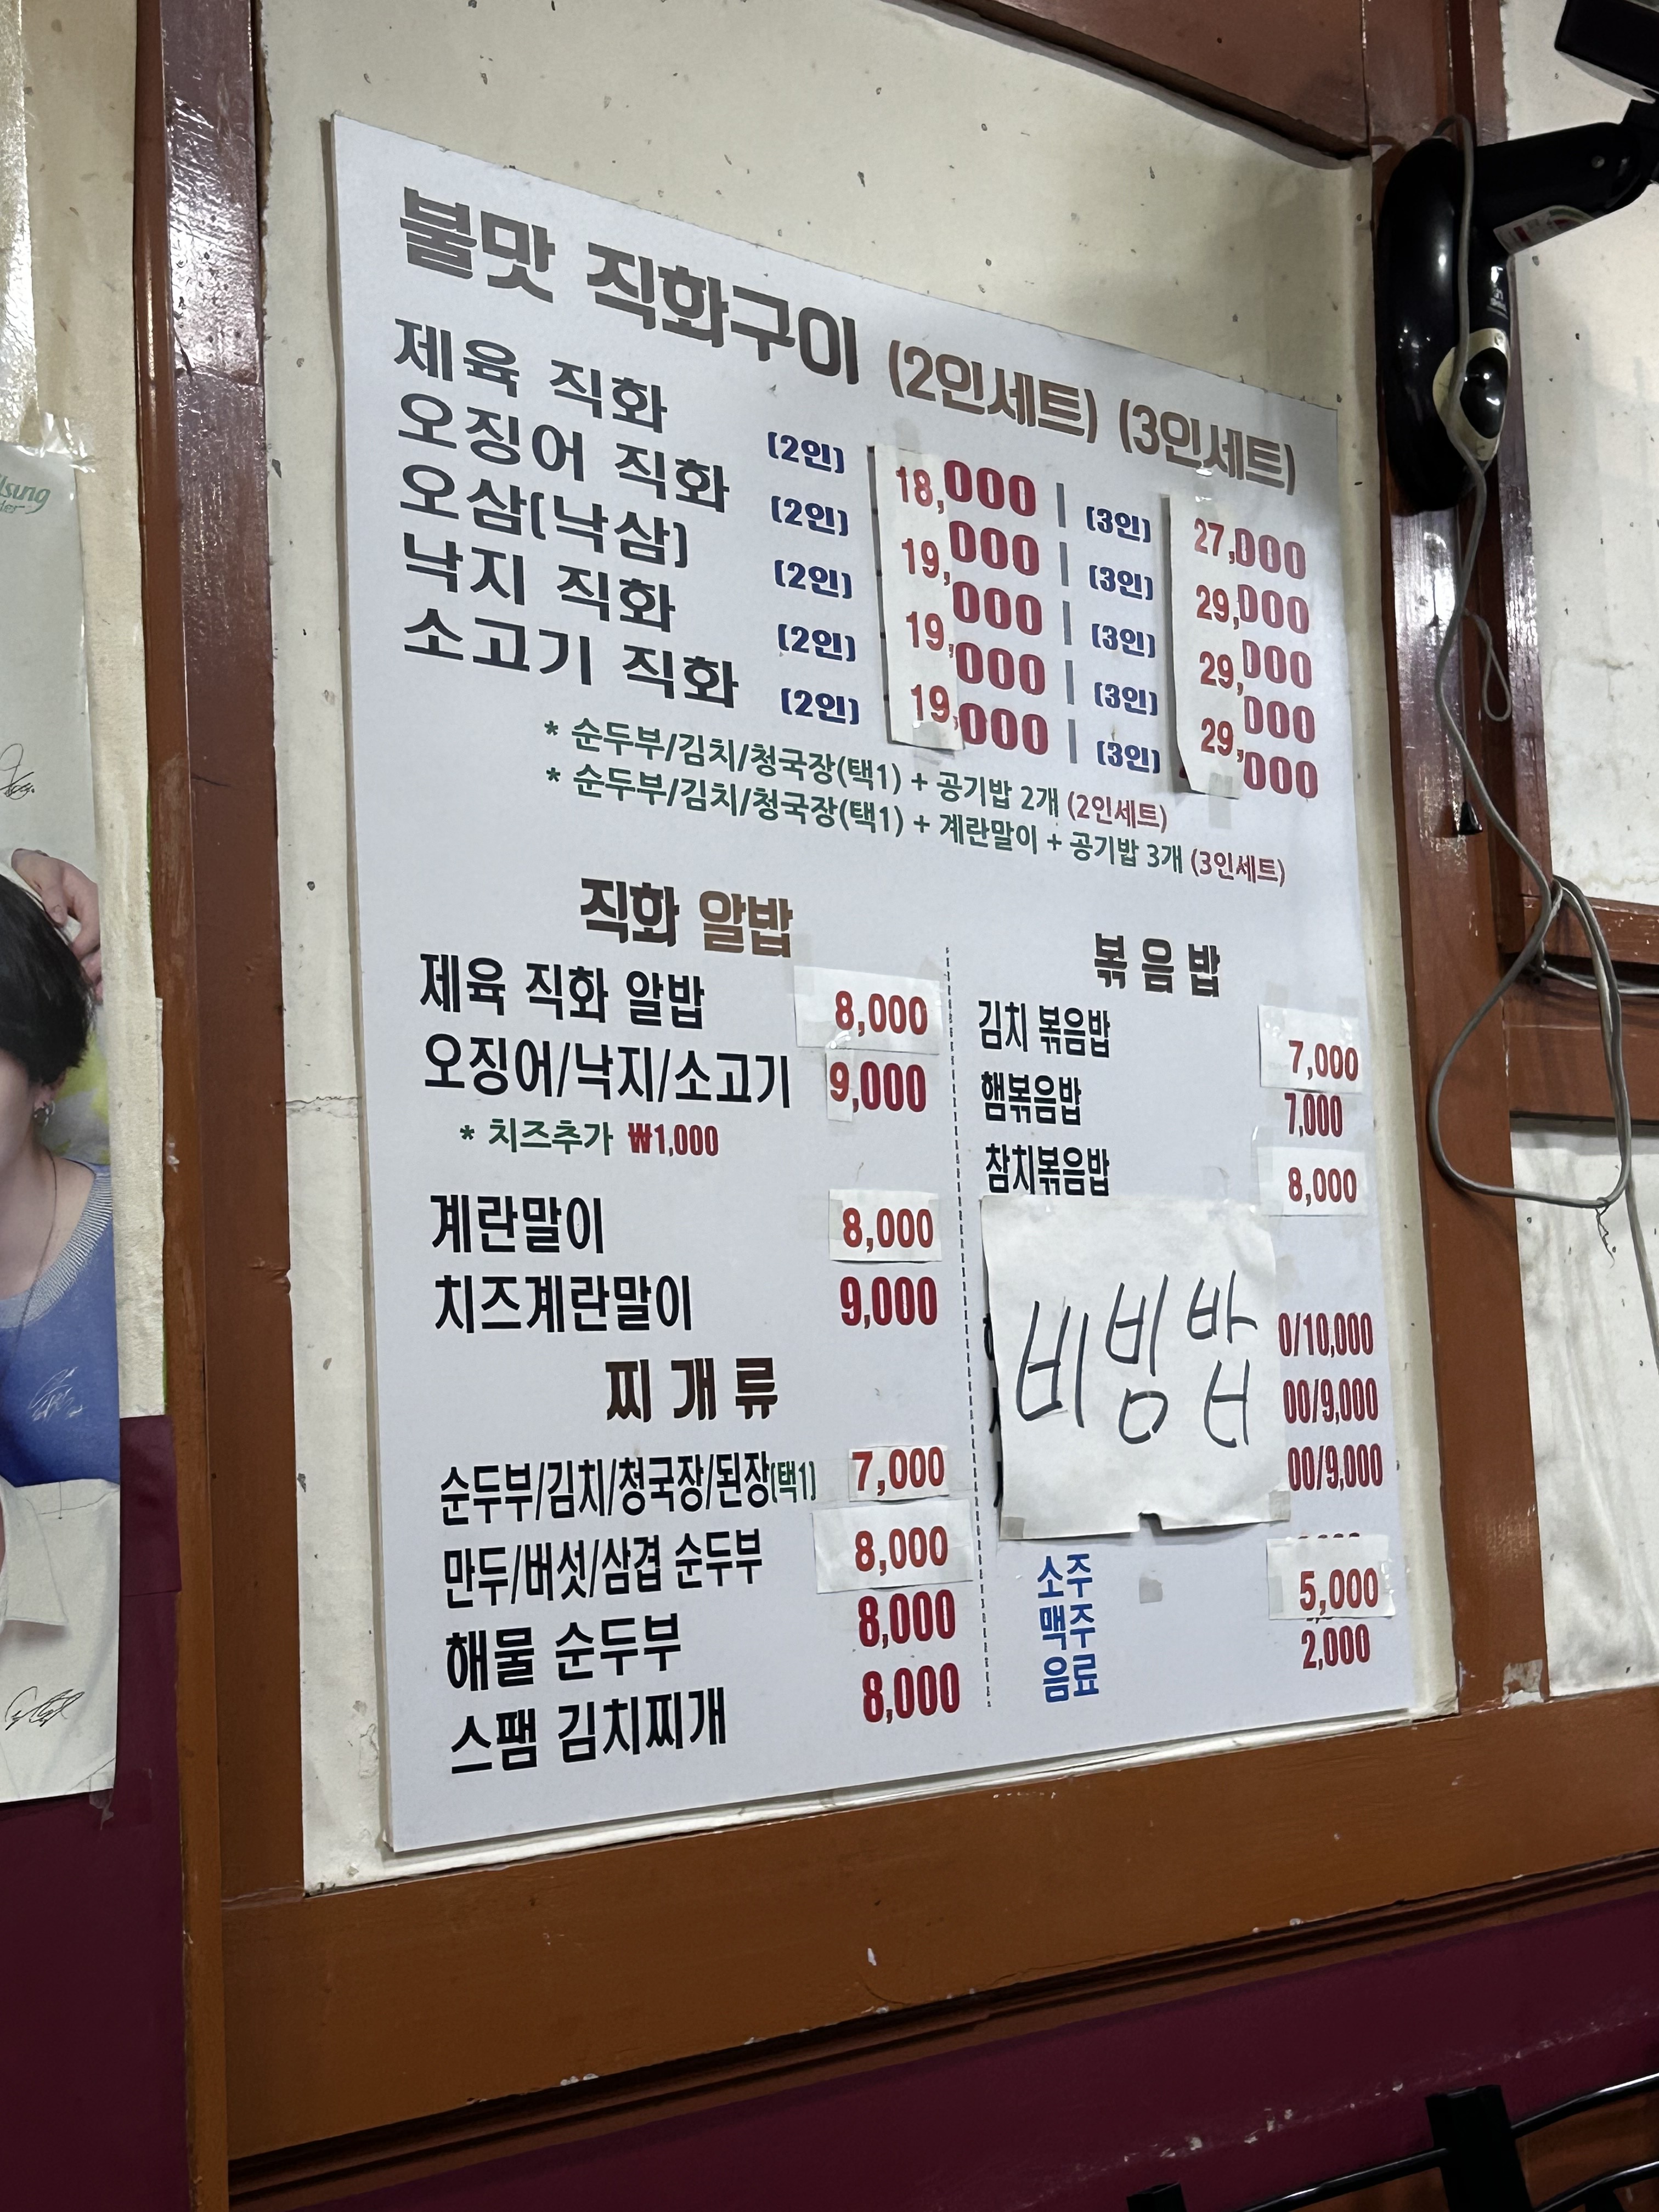 불맛 직화구이 (2인세트) (3인세트)
제육 직화 (2인) 18,000 | (3인) 27,000
오징어 직화 (2인) 19,000 | (3인) 29,000
오삼(낙삼) (2인) 19,000 | (3인) 29,000
낙지 직화 (2인) 19,000 | (3인) 29,000
소고기 직화 (2인) 000 | (3인) 000
* 순두부/김치/청국장(택1) + 공기밥 2개 (2인세트)
* 순두부/김치/청국장(택1) + 계란말이 + 공기밥 3개 (3인세트)
직화 알밥
제육 직화 알밥 8,000
오징어/낙지/소고기 9,000
* 치즈추가 ₩1,000
계란말이 8,000
치즈계란말이 9,000
찌개류
순두부/김치/청국장/된장(택1) 7,000
만두/버섯/삼겹 순두부 8,000
해물 순두부 8,000
스팸 김치찌개 8,000
볶음밥
김치 볶음밥 7,000
햄볶음밥 7,000
참치볶음밥 8,000
비빔밥
0/10,000
00/9,000
00/9,000
소주 5,000
맥주
음료 2,000